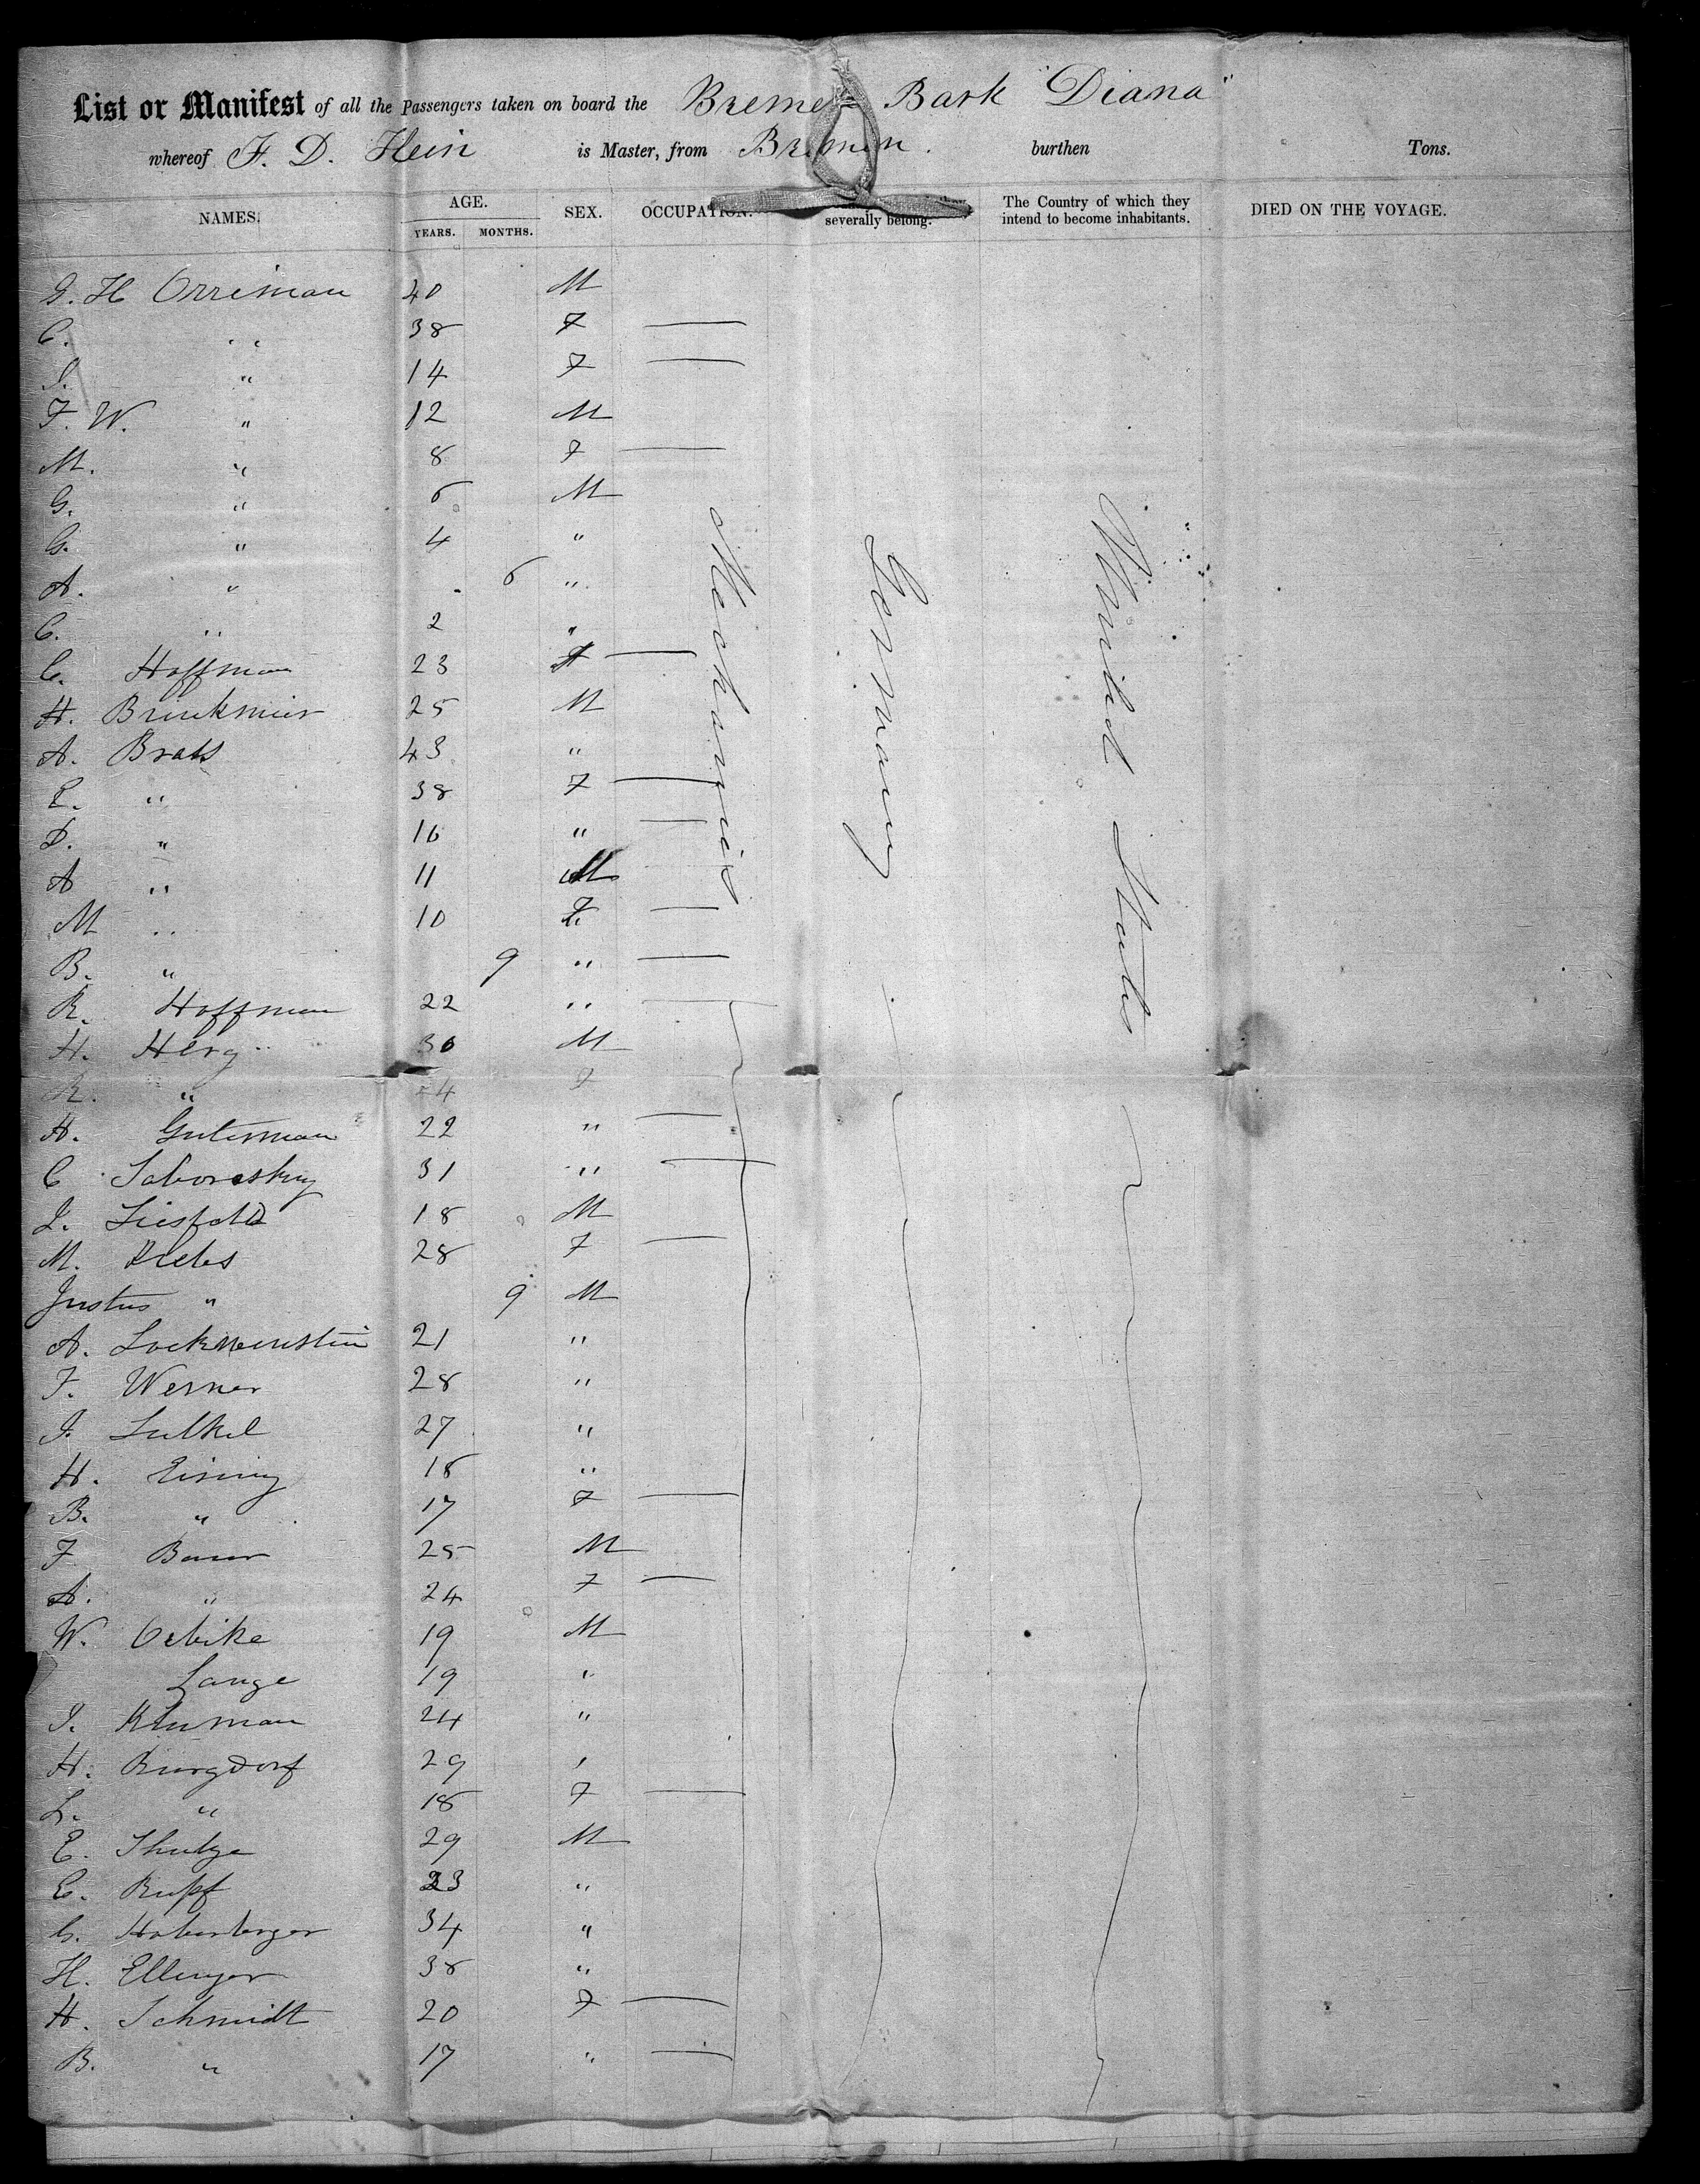 List or Manifest of all the Passengers taken on board the Bremer Bark "Diana"
whereof F. D. Hein is Master, from Bremen. burthen Tons.
NAMES. AGE. YEARS. MONTHS. SEX. OCCUPATION. severally belong. The Country of which they intend to become inhabitants. DIED ON THE VOYAGE.
Mechanics Germany United States
G. H Orreiman 40 M
C. " 38 F —
J. " 14 F —
F. W. " 12 M
M. " 8 F —
G. " 6 M
G. " 4 "
A. " 6 "
C. " 2 "
C. Hoffman 23 —
H. Brinkmeier 25 M
A. Brats 43 "
E. " 38 F —
D. " 16 " —
A " 11 M
M " 10 F —
B. " 9 " —
R. Hoffman 22 " —
H. Herg 30 M
R. " 24 F
H. Guterman 22 " —
C Saboresky 31 " —
J. Liesfeld 18 M
M. Krebs 28 F —
Justus " 9 M
A. Lockwenstein 21 "
F. Werner 28 "
J. Lulkel 27 "
H. Eising 18 "
B. " 17 F —
F Bauer 25 M
A. " 24 F —
W. Oebike 19 M
Lange 19 "
J. Kluman 24 "
H. Burgdorf 29 "
L. " 18 F —
E. Shulze 29 M
C. Rupf 23 "
G. Haberberger 34 "
H. Ellinger 38 "
H. Schmidt 20 F —
B. " 17 " —